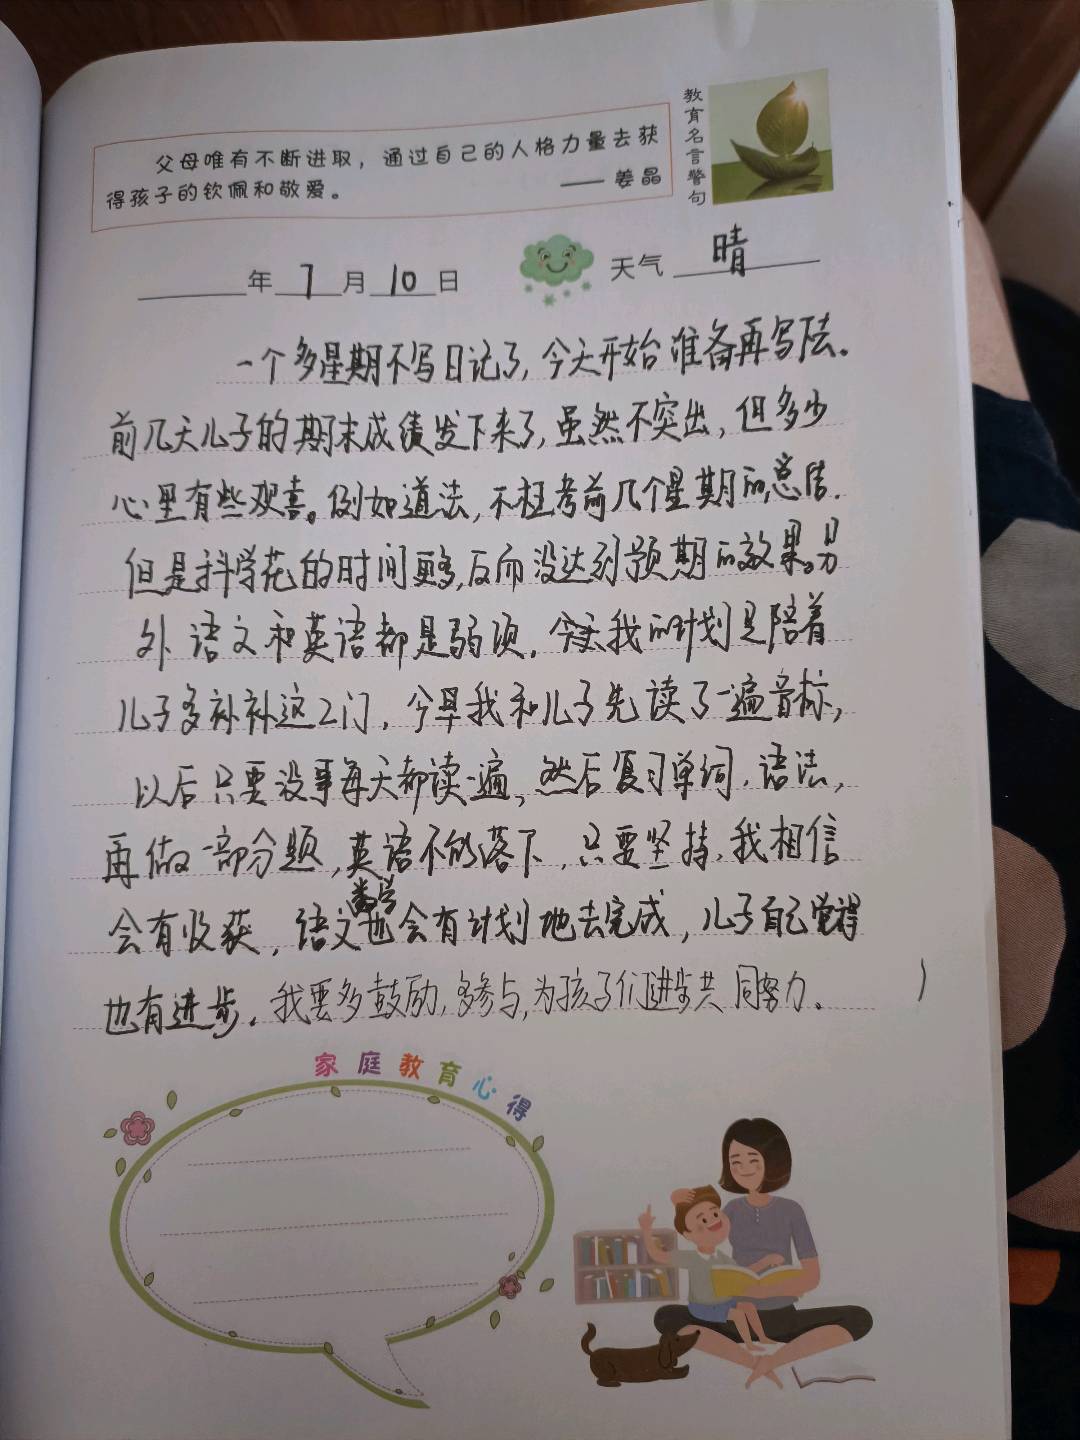 父母唯有不断进取，通过自己的人格力量去获
得孩子的钦佩和敬爱。
—— 姜晶
教育名言警句
年 7 月 10 日 天气 晴
一个多星期不写日记了，今天开始准备再写下去。
前几天儿子的期末成绩发下来了，虽然不突出，但多少
心里有些观喜。例如道法，不枉考前几个星期的总结.
但是科学花的时间更多,反而没达到预期的效果。另
外语文和英语都是弱项，今天我的计划是陪着
儿子多补补这2门，今早我和儿子先读了一遍音标，
以后只要没事每天都读一遍，然后复习单词，语法，
再做一部分题，英语不能落下，只要坚持，我相信
会有收获，语文数学也会有计划地去完成，儿子自己觉得
也有进步。我要多鼓励，多参与，为孩子们进步共同努力。
家庭教育心得